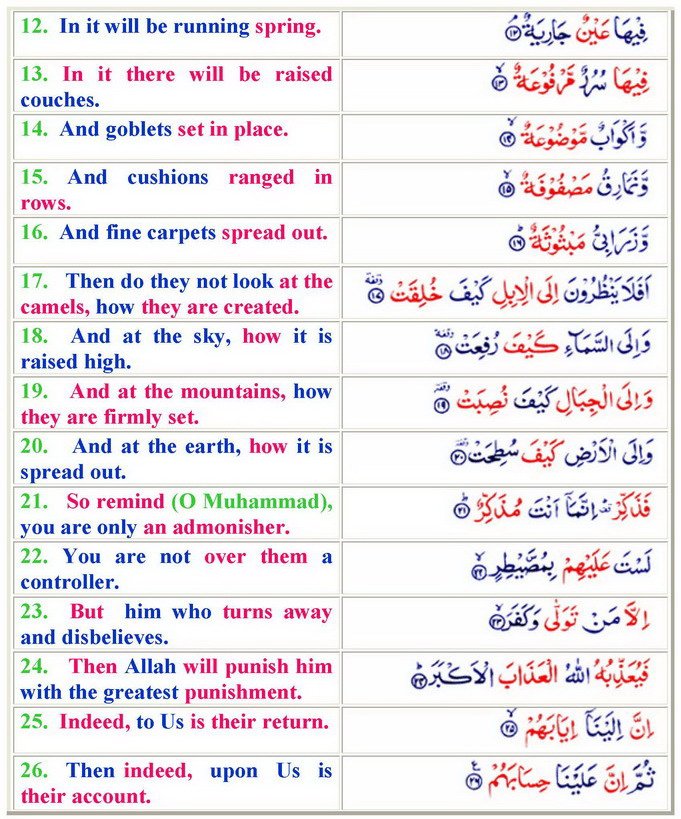 12. In it will be running spring.
فِيْهَا عَيْنٌ جَارِيَةٌ ۙ‏﴿۱۲﴾
13. In it there will be raised
couches.
فِيْهَا سُرُرٌ مَّرْفُوْعَةٌ ۙ‏﴿۱۳﴾
14. And goblets set in place.
وَّاَكْوَابٌ مَّوْضُوْعَةٌ ۙ‏﴿۱۴﴾
15. And cushions ranged in
rows.
وَّنَمَارِقُ مَصْفُوْفَةٌ ۙ‏﴿۱۵﴾
16. And fine carpets spread out.
وَّزَرَابِىُّ مَبْثُوْثَةٌ ؕ‏﴿۱۶﴾
17. Then do they not look at the
camels, how they are created.
اَفَلَا يَنْظُرُوْنَ اِلَى الْاِبِلِ كَيْفَ خُلِقَتْ وقفة‏﴿۱۷﴾
18. And at the sky, how it is
raised high.
وَاِلَى السَّمَآءِ كَيْفَ رُفِعَتْ وقفة‏﴿۱۸﴾
19. And at the mountains, how
they are firmly set.
وَاِلَى الْجِبَالِ كَيْفَ نُصِبَتْ وقفة‏﴿۱۹﴾
20. And at the earth, how it is
spread out.
وَاِلَى الْاَرْضِ كَيْفَ سُطِحَتْ وقفة‏﴿۲۰﴾
21. So remind (O Muhammad),
you are only an admonisher.
فَذَكِّرْ قف اِنَّمَاۤ اَنْتَ مُذَكِّرٌ ؕ‏﴿۲۱﴾
22. You are not over them a
controller.
لَسْتَ عَلَيْهِمْ بِمُصَۜيْطِرٍ ۙ‏﴿۲۲﴾
23. But him who turns away
and disbelieves.
اِلَّا مَنْ تَوَلّٰى وَكَفَرَ ۙ‏﴿۲۳﴾
24. Then Allah will punish him
with the greatest punishment.
فَيُعَذِّبُهُ اللّٰهُ الْعَذَابَ الْاَكْبَرَ ؕ‏﴿۲۴﴾
25. Indeed, to Us is their return.
اِنَّ اِلَيْنَاۤ اِيَابَهُمْ ۙ‏﴿۲۵﴾
26. Then indeed, upon Us is
their account.
ثُمَّ اِنَّ عَلَيْنَا حِسَابَهُمْ ع‏﴿۲۶﴾